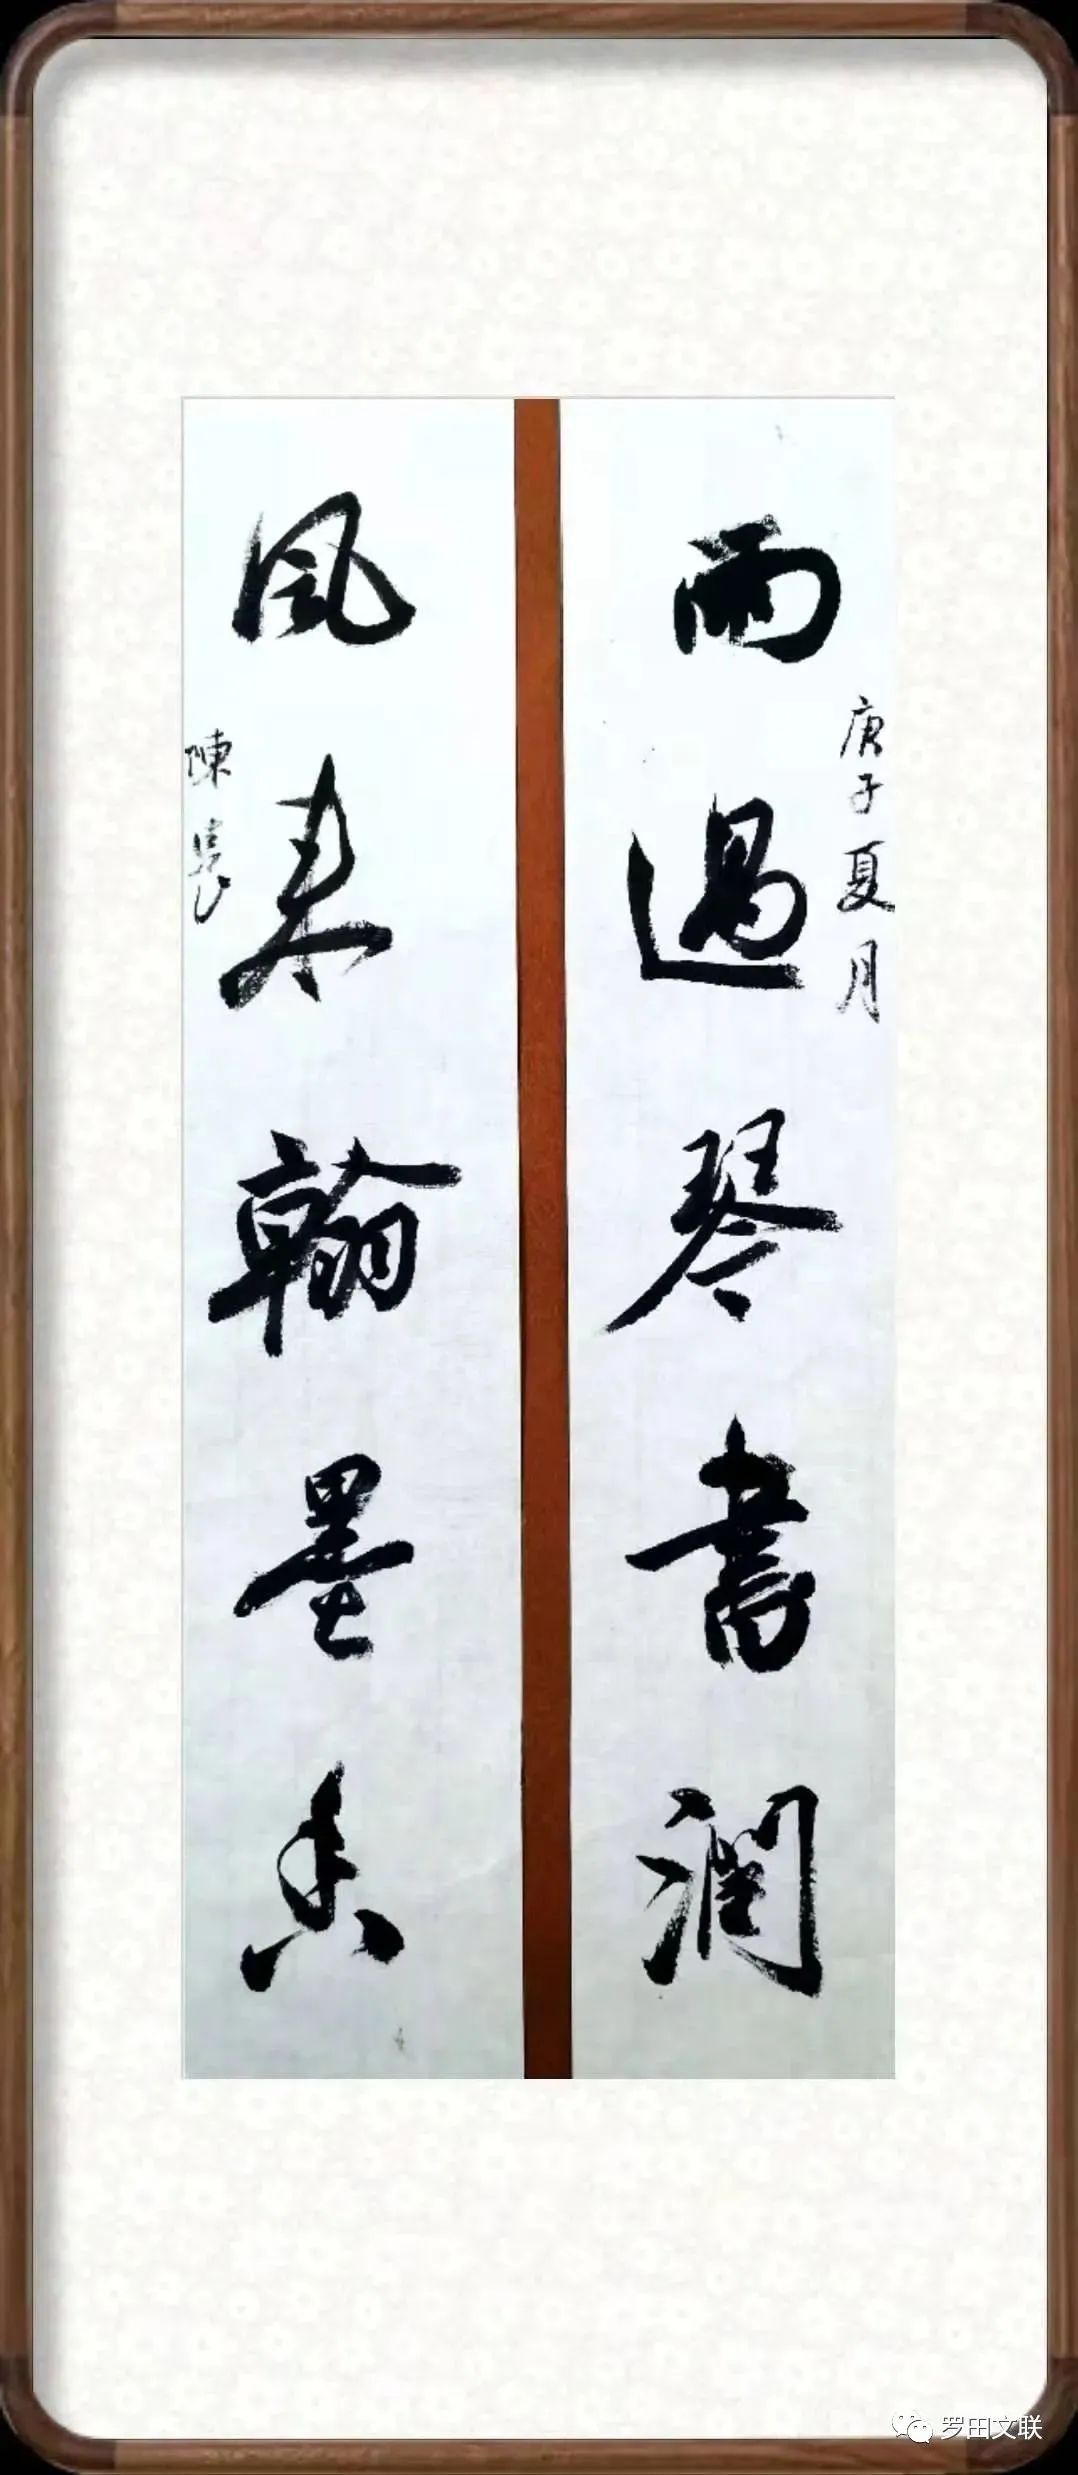 雨過琴書潤
庚子夏月
風来翰墨香
陳
罗田文联